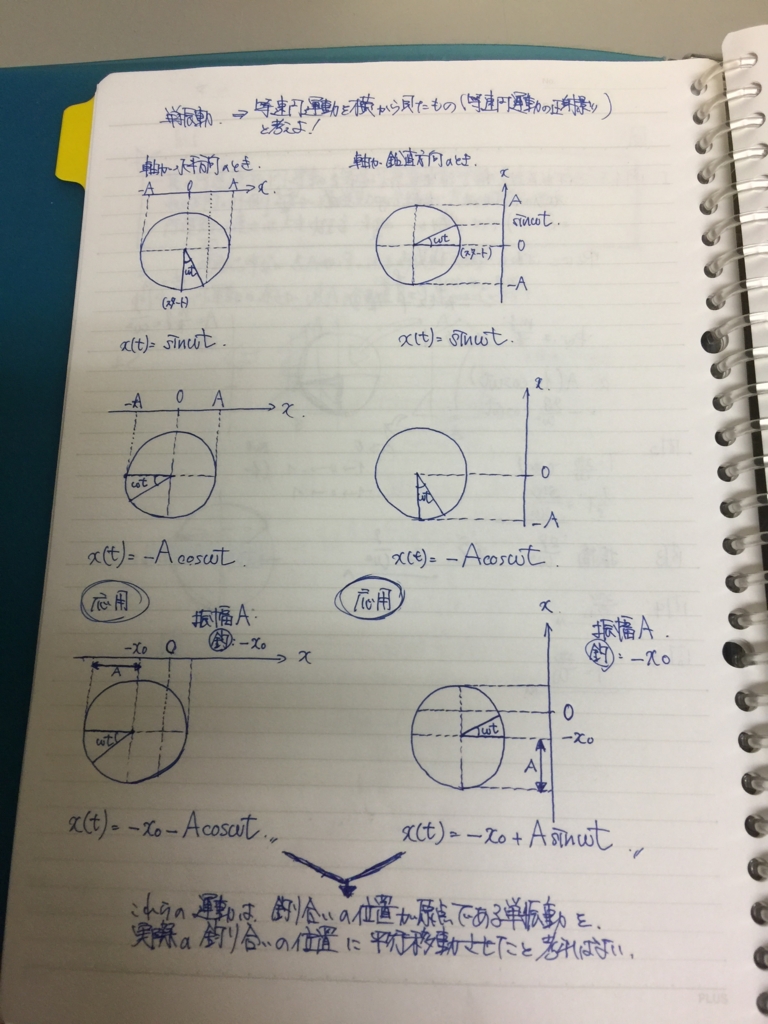 単振動 → 等速円運動を横から見たもの(等速円運動の正射影)
と考えよ!
軸が水平方向のとき.
-A 0 A x
ωt
(スタート)
x(t) = sinωt.
軸が鉛直方向のとき.
x
A
sinωt
ωt
(スタート)
0
-A
x(t) = sinωt.
-A 0 A x.
ωt
x(t) = -A cosωt.
x.
0
ωt
-A
x(t) = -A cosωt.
応用
振幅A:
釣: -x₀
-x₀ 0 x
A
ωt
x(t) = -x₀ - A cosωt.〃
応用
振幅A.
釣: -x₀
x
0
ωt
-x₀
A
x(t) = -x₀ + A sinωt 〃
これらの運動は、釣り合いの位置が原点である単振動を、
実際の釣り合いの位置に平行移動させたと考えればよい.
PLUS